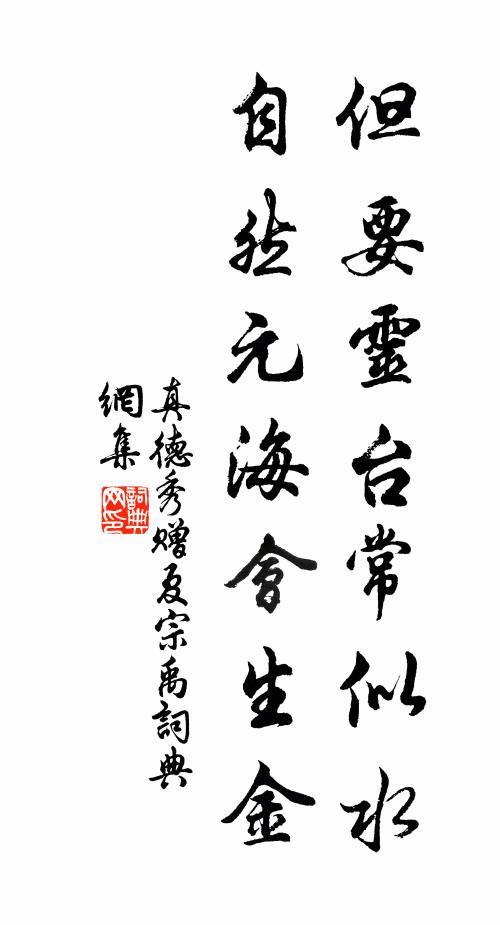 但要靈台常似水
自然元海會生金
真德秀赠夏宗禹詞典
網集
詞典
网印